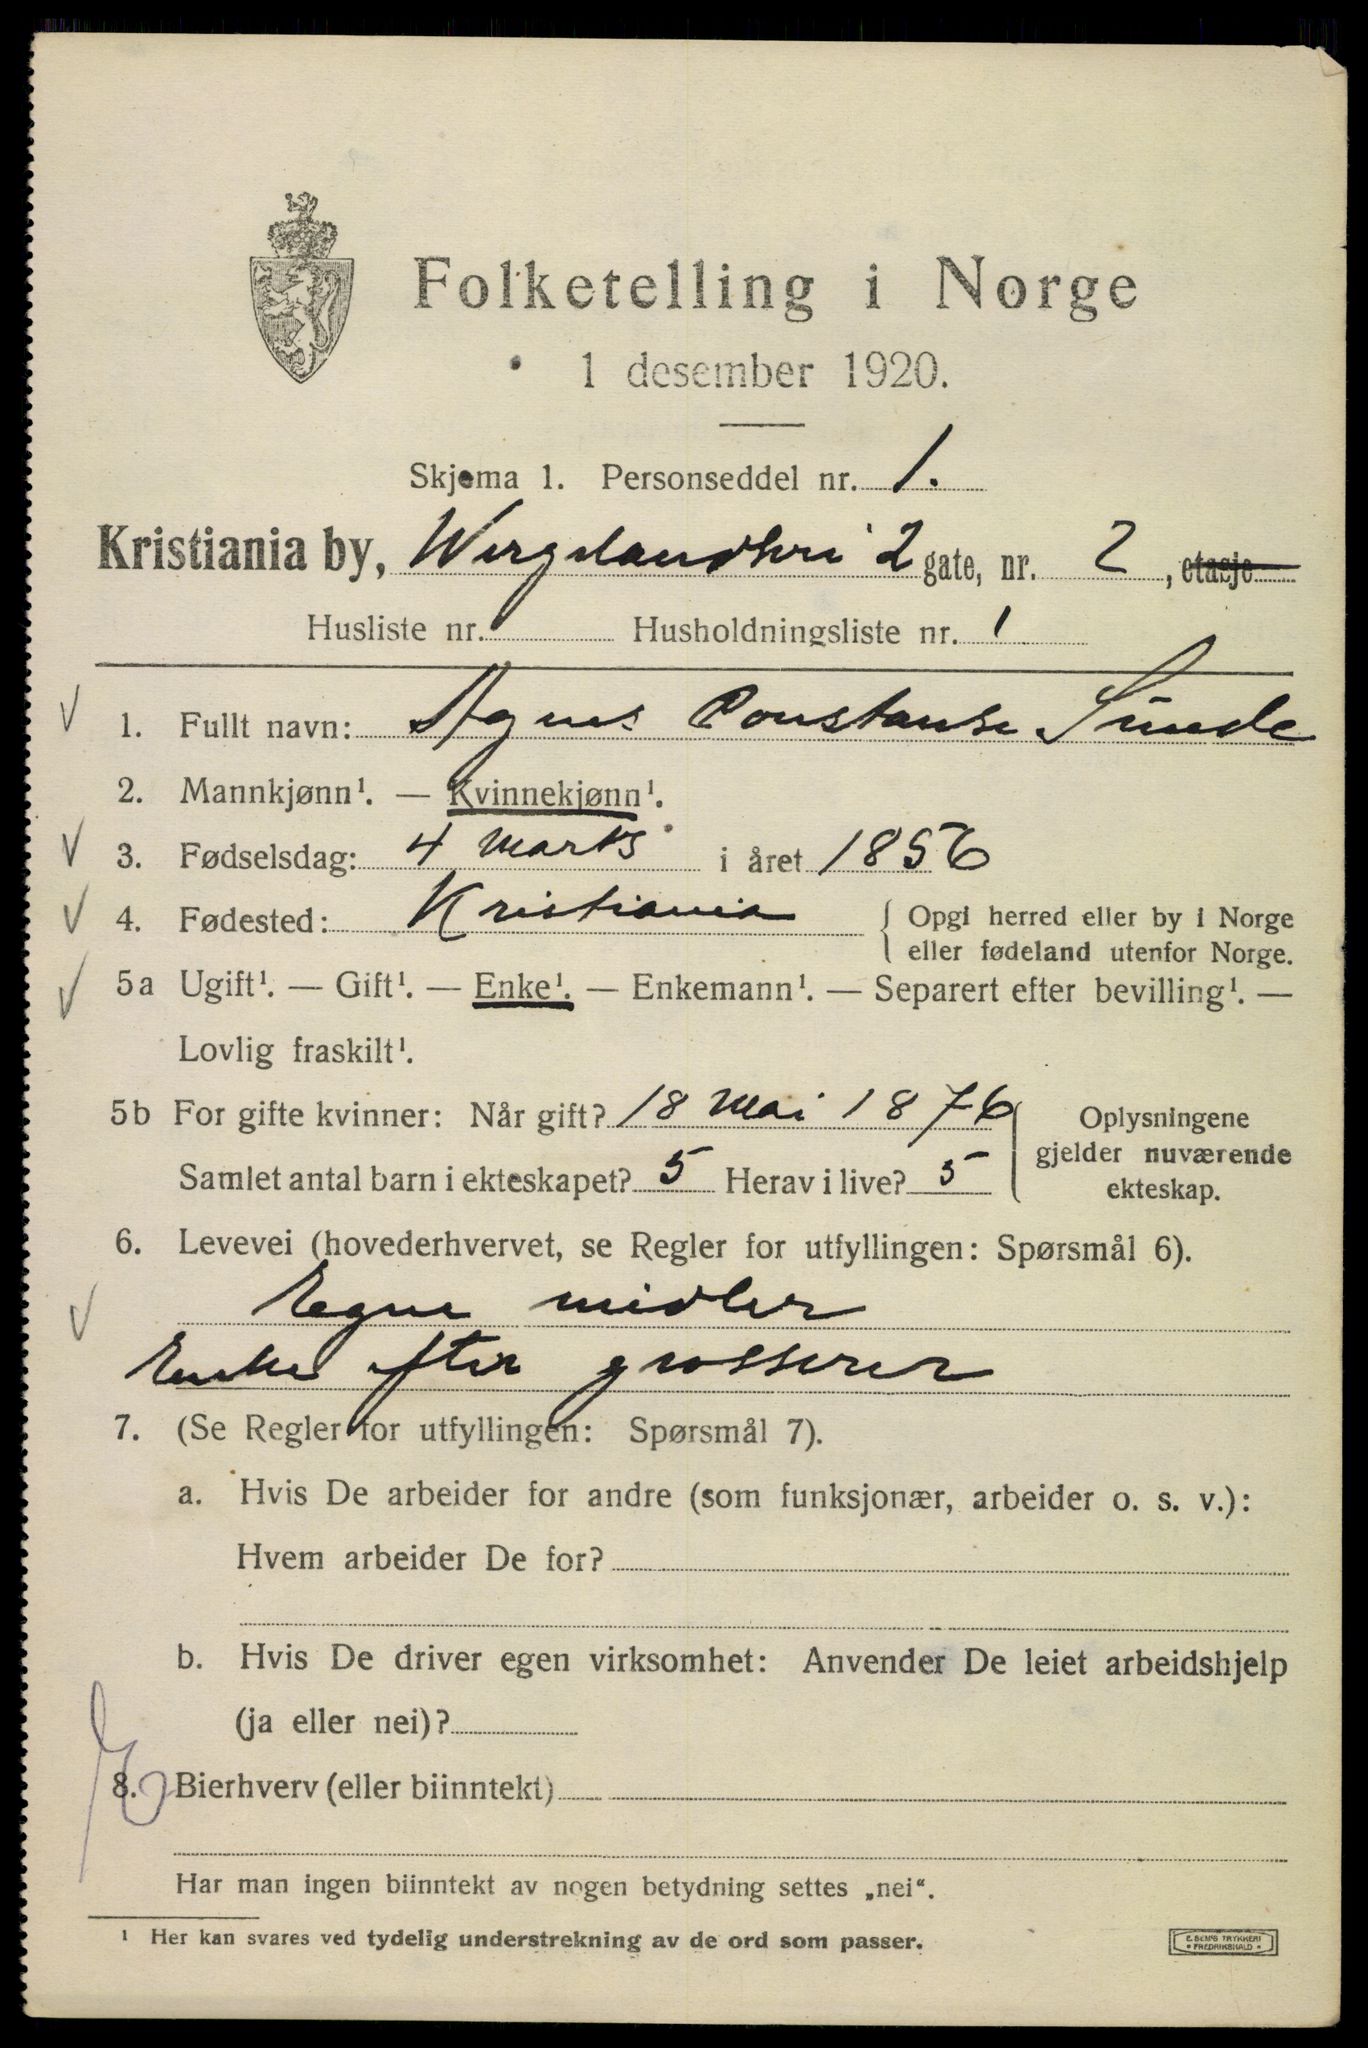 Folketelling i Norge
1 desember 1920.
Skjema 1. Personseddel nr. 1.
Kristiania by, Wergelandsvei 2 gate, nr. 2, etasje
Husliste nr. Husholdningsliste nr. 1
1. Fullt navn: Agnes Constanse Sunde
2. Mannkjønn¹. — Kvinnekjønn¹.
3. Fødselsdag: 4 marts i året 1856
4. Fødested: Kristiania { Opgi herred eller by i Norge
eller fødeland utenfor Norge.
5a Ugift¹. — Gift¹. — Enke¹. — Enkemann¹. — Separert efter bevilling¹. —
Lovlig fraskilt¹.
5b For gifte kvinner: Når gift? 18 mai 1876
Samlet antal barn i ekteskapet? 5 Herav i live? 5
Oplysningene
gjelder nuværende
ekteskap.
6. Levevei (hovederhvervet, se Regler for utfyllingen: Spørsmål 6).
Egne midler
Enke efter grosserer
7. (Se Regler for utfyllingen: Spørsmål 7).
a. Hvis De arbeider for andre (som funksjonær, arbeider o. s. v.):
Hvem arbeider De for?
b. Hvis De driver egen virksomhet: Anvender De leiet arbeidshjelp
(ja eller nei)?
8. Bierhverv (eller biinntekt)
Har man ingen biinntekt av nogen betydning settes „nei“.
¹ Her kan svares ved tydelig understrekning av de ord som passer.
E. SEM'S TRYKKERI
• FREDRIKSHALD •